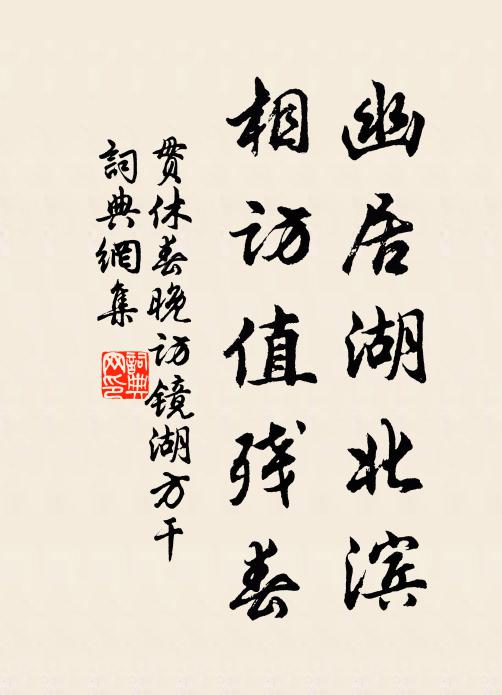 幽居湖北滨
相访值残春
贯休春晚访镜湖方干
詞典網集
詞典网印